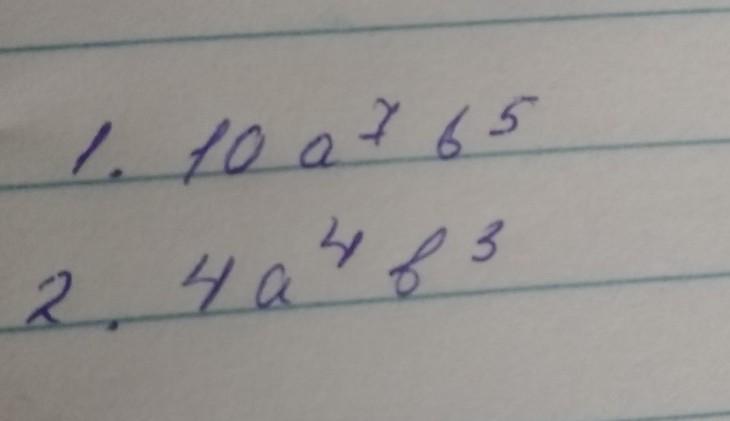 1. 10 a⁷ b⁵
2. 4a⁴ b³